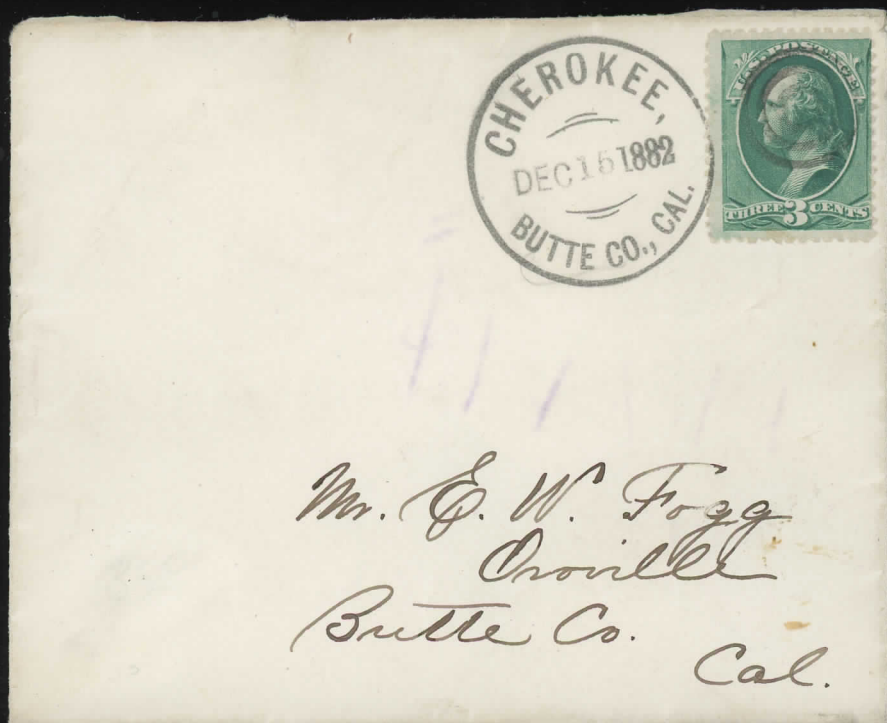 CHEROKEE,
DEC 15 1882
BUTTE CO., CAL.
U.S. POSTAGE
THREE 3 CENTS
Mr. E. W. Fogg
Oroville
Butte Co.
Cal.